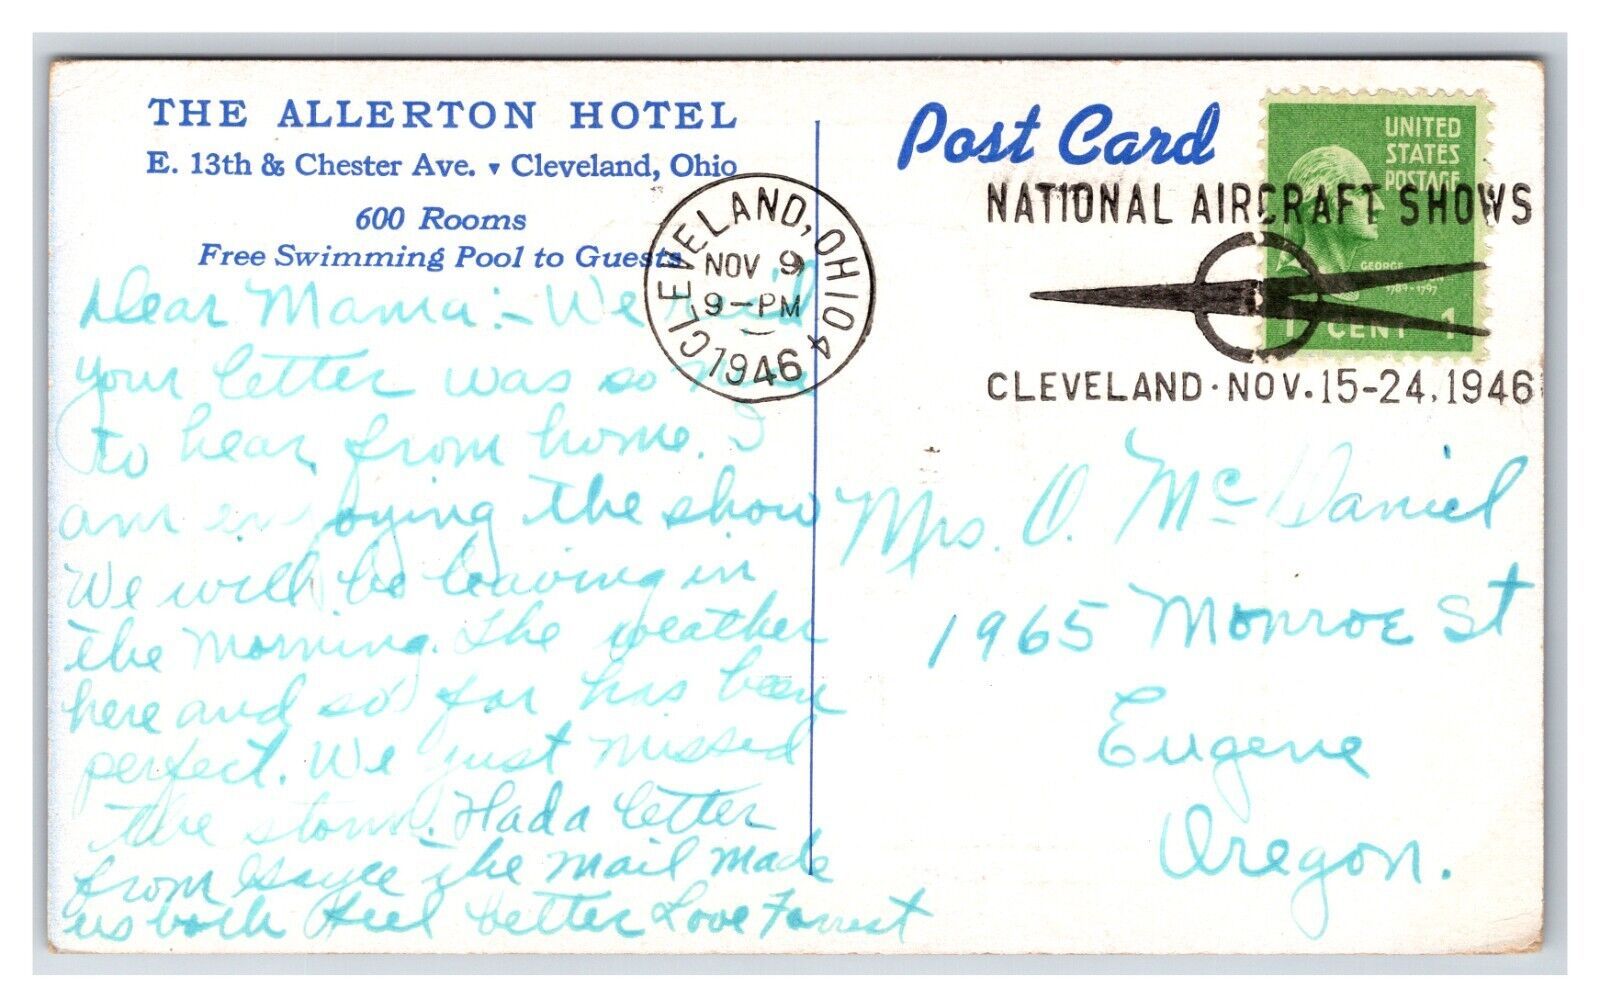 THE ALLERTON HOTEL
E. 13th & Chester Ave. ▾ Cleveland, Ohio
600 Rooms
Free Swimming Pool to Guests
Dear Mama:- We
your letter was so nice
to hear from home. I
am enjoying the show
We will be leaving in
the morning. The weather
here and so far has been
perfect. We just missed
the storm. Had a letter
from the mail made
us both feel better Love Forrest
CLEVELAND, OHIO 4
NOV 9
9-PM
1946
Post Card
UNITED
STATES
POSTAGE
GEORGE
1789-1797
1 CENT 1
NATIONAL AIRCRAFT SHOWS
CLEVELAND · NOV. 15-24, 1946
Mrs. O. McDaniel
1965 Monroe St
Eugene
Oregon.